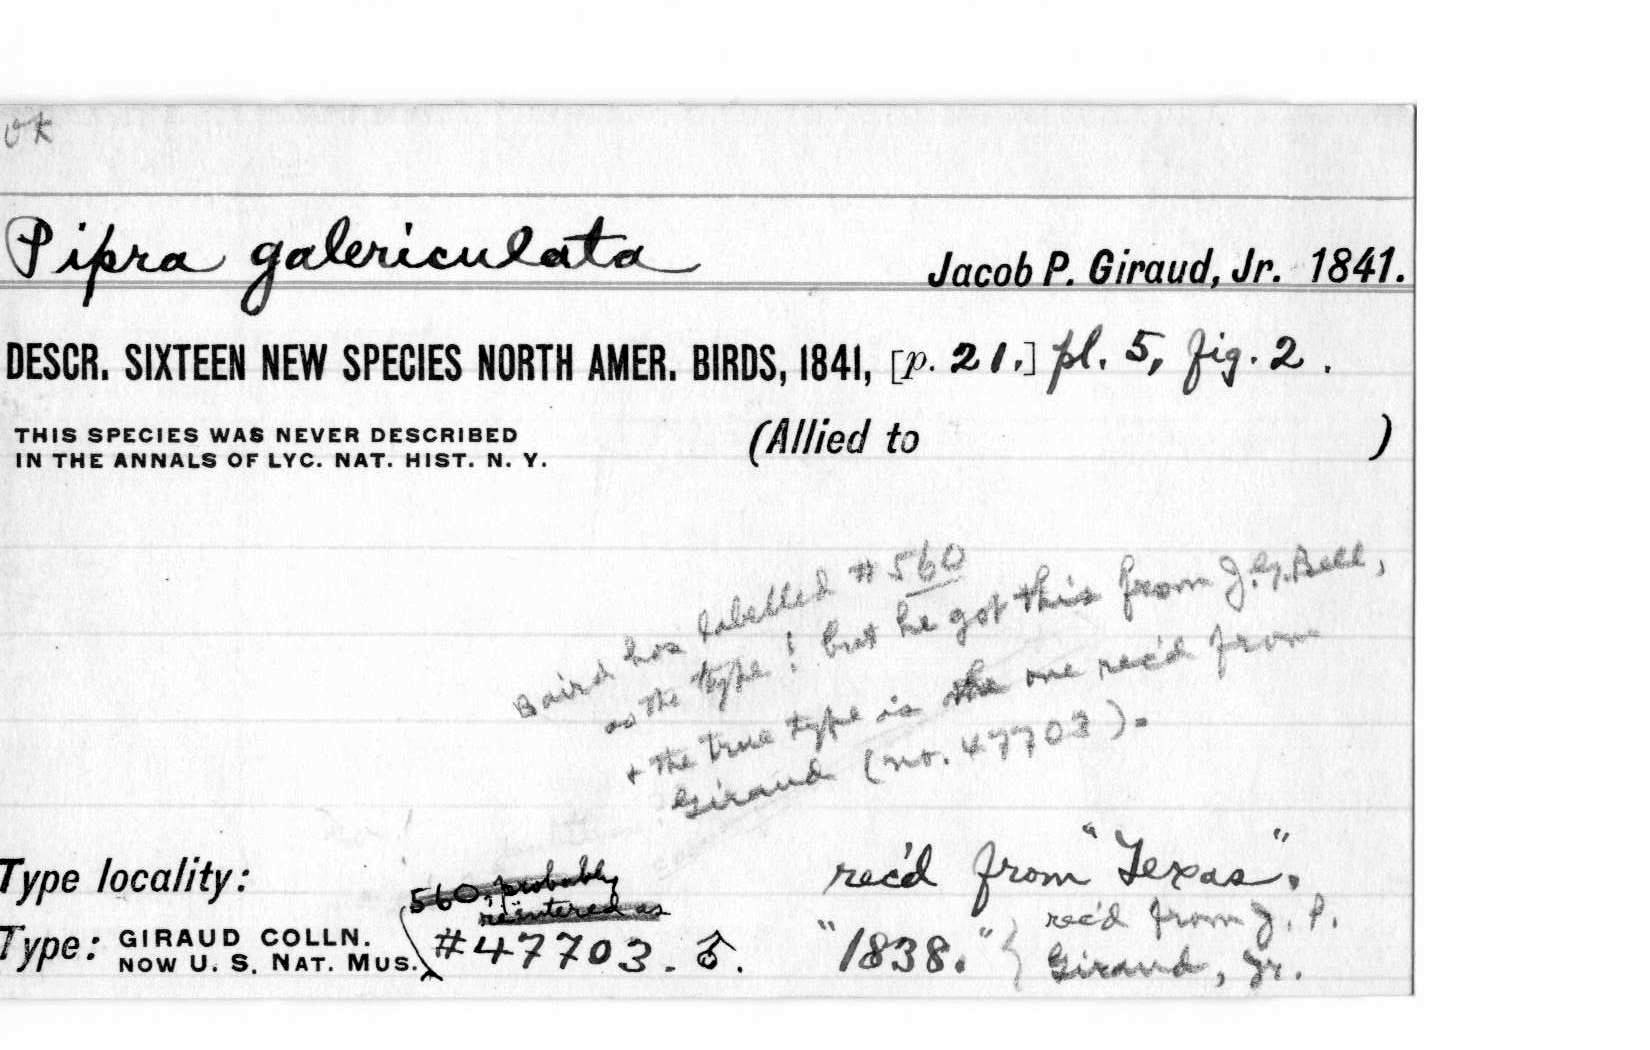 ok
Pipra galericulata Jacob P. Giraud, Jr. 1841.
DESCR. SIXTEEN NEW SPECIES NORTH AMER. BIRDS, 1841, [p. 21.] pl. 5, fig. 2.
THIS SPECIES WAS NEVER DESCRIBED (Allied to )
IN THE ANNALS OF LYC. NAT. HIST. N. Y.
Baird has labelled # 560
as the type! but he got this from J.G. Bell,
+ the true type is the one rec'd from
Giraud (no. 47703).
Type locality: rec'd from "Texas".
560, probably
reëntered as
Type: GIRAUD COLLN. #47703. ♂. "1838." } rec'd from J. P.
NOW U. S. NAT. MUS. Giraud, Jr.